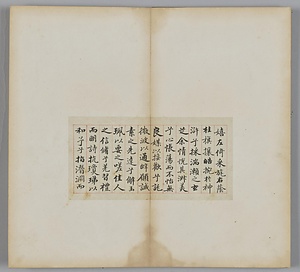 嬉左倚采旄右蔭
桂旗攘皓腕於神
滸兮採湍瀨之玄
芝余情悅其淑美
兮心振蕩而不怡無
良媒以接歡兮託
微波以通辭願誠
素之先達兮解玉
珮以要之嗟佳人
之信脩兮羌習禮
而明詩抗瓊珶以
和予兮指潛淵而